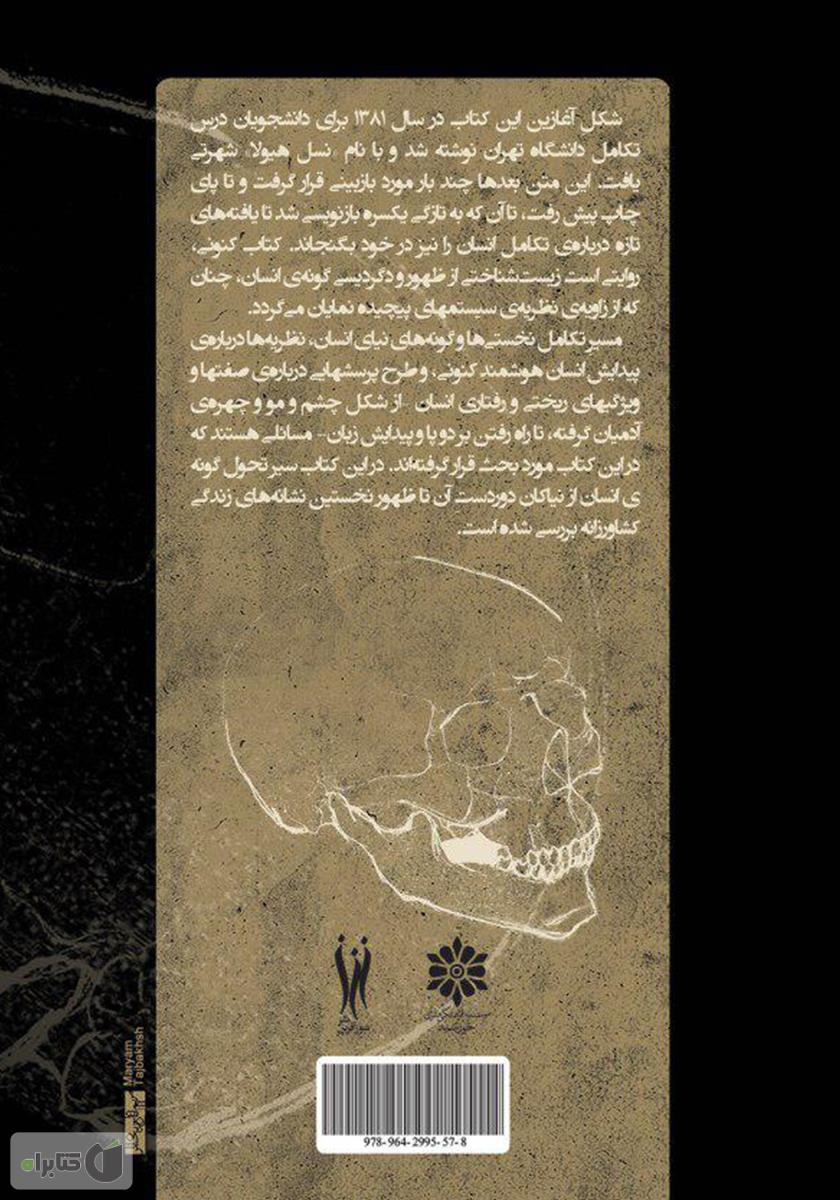 شکل آغازین این کتاب در سال ۱۳۸۱ برای دانشجویان درس
تکامل دانشگاه تهران نوشته شد و با نام «نسل هیولا» شهرتی
یافت. این متن بعدها چند بار مورد بازبینی قرار گرفت و تا پای
چاپ پیش رفت، تا آن که به تازگی یکسره بازنویسی شد تا یافته‌های
تازه درباره‌ی تکامل انسان را نیز در خود بگنجاند. کتاب کنونی،
روایتی است زیست‌شناختی از ظهور و دگردیسی گونه‌ی انسان، چنان
که از زاویه‌ی نظریه‌ی سیستمهای پیچیده نمایان می‌گردد.
مسیر تکامل نخستی‌ها و گونه‌های نیای انسان، نظریه‌ها درباره‌ی
پیدایش انسان هوشمند کنونی، و طرح پرسشهایی درباره‌ی صفتها و
ویژگیهای ریختی و رفتاری انسان -از شکل چشم و مو و چهره‌ی
آدمیان گرفته، تا راه رفتن بر دو پا و پیدایش زبان- مسائلی هستند که
در این کتاب مورد بحث قرار گرفته‌اند. در این کتاب سیر تحول گونه
ی انسان از نیاکان دوردست آن تا ظهور نخستین نشانه‌های زندگی
کشاورزانه بررسی شده است.
Maryam
Tajbakhsh
978-964-2995-57-8
کتابراه